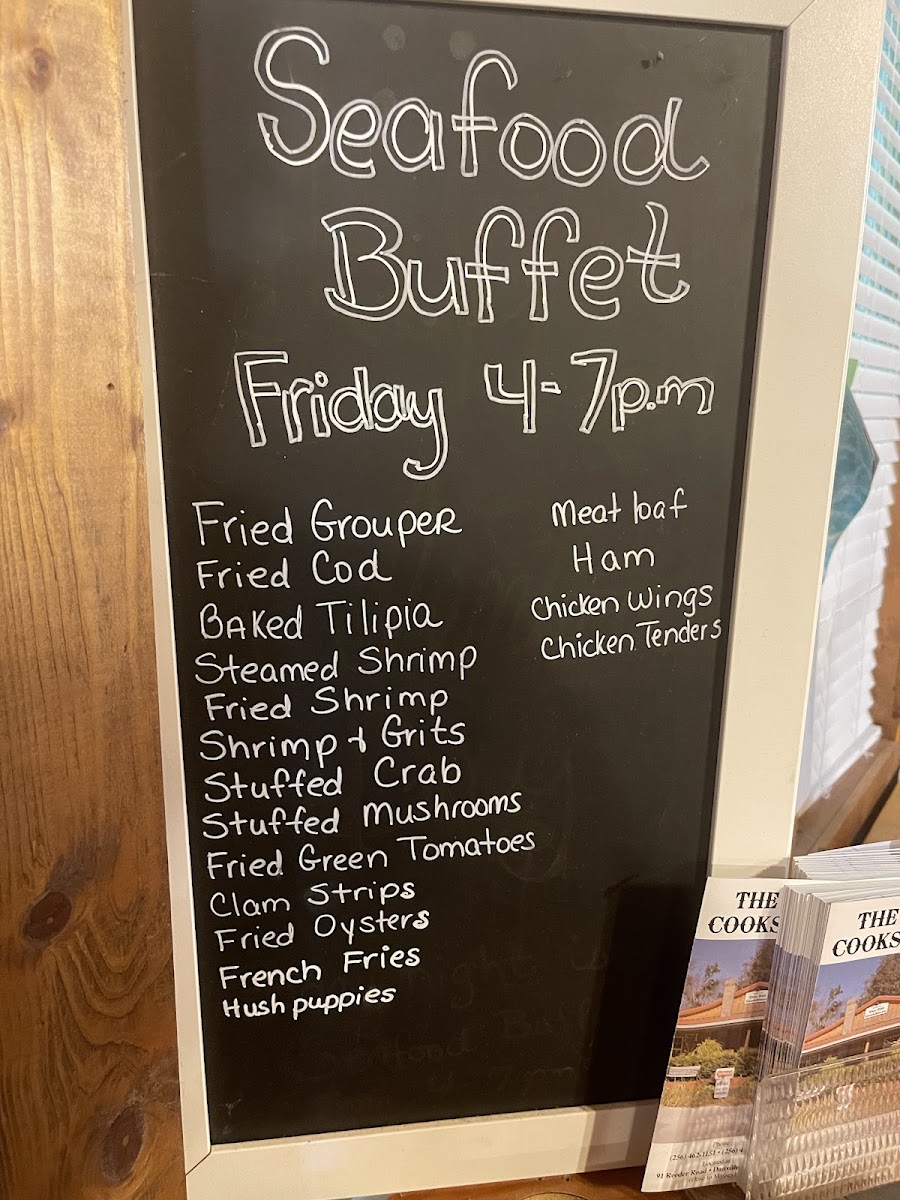 Seafood
Buffet
Friday 4-7p.m
Fried Grouper
Fried Cod
Baked Tilipia
Steamed Shrimp
Fried Shrimp
Shrimp & Grits
Stuffed Crab
Stuffed Mushrooms
Fried Green Tomatoes
Clam Strips
Fried Oysters
French Fries
Hush puppies
Meat loaf
Ham
Chicken Wings
Chicken Tenders
THE
COOKS
THE
COOKS
Phone
Located at
91 Reeder Road •